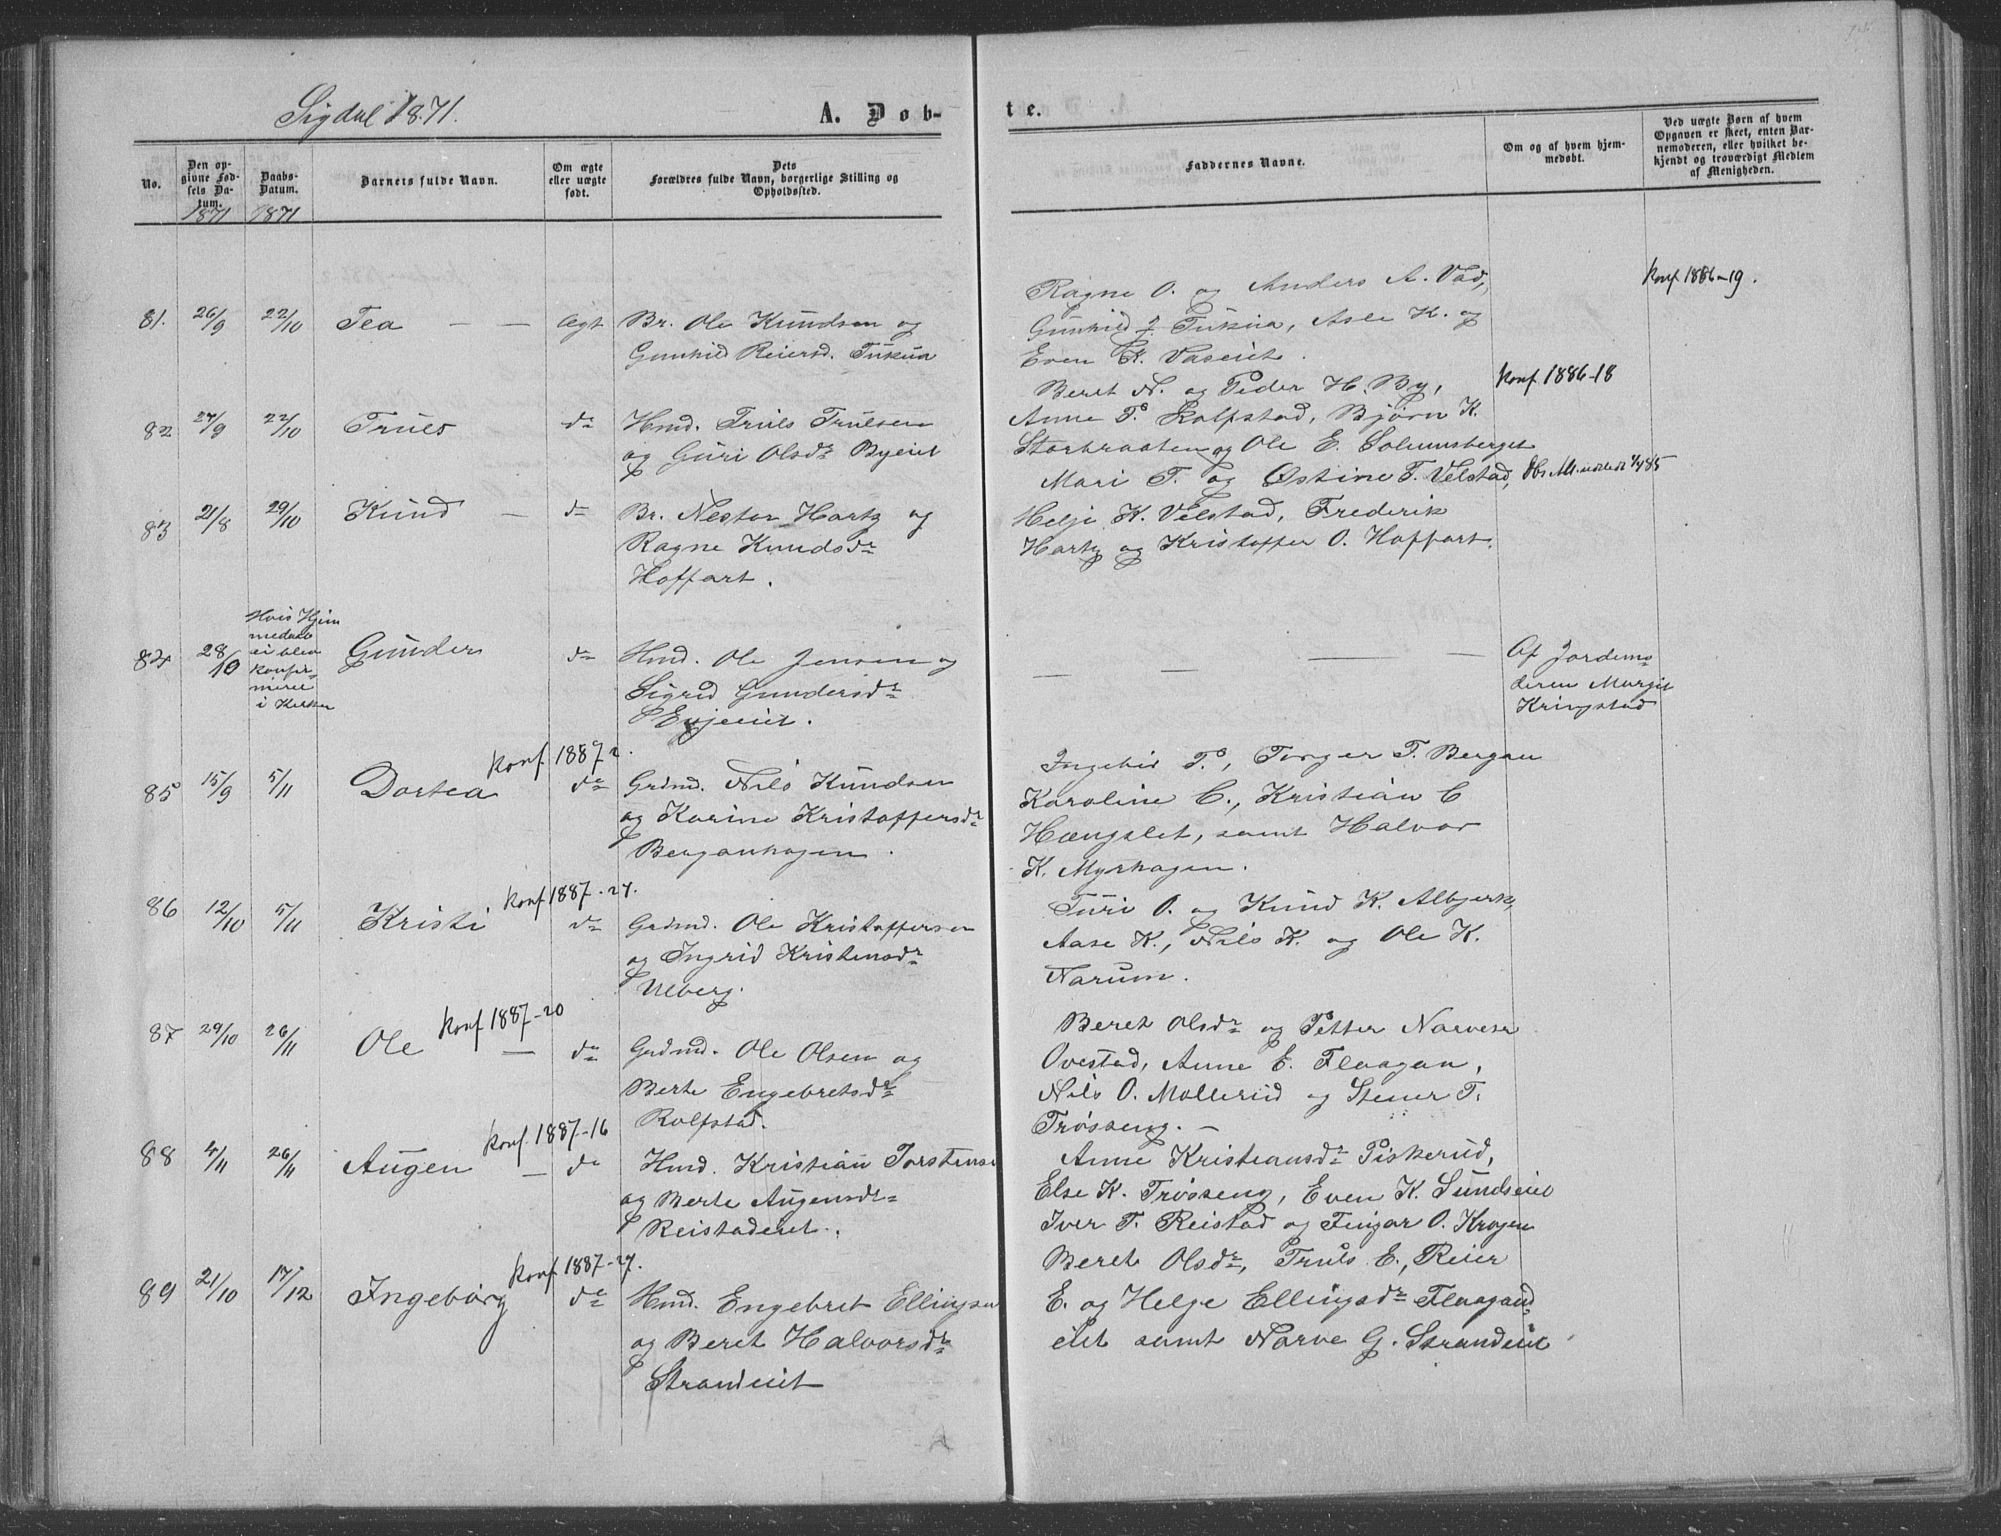 Sigdal 1871.
A. Døb-
te.
No.
Den op-
givne Fød-
sels Da-
tum.
1871
Daabs-
Datum.
1871
Barnets fulde Navn.
Om ægte
eller uægte
født.
Dets
Forældres fulde Navn, borgerlige Stilling og
Opholdssted.
Faddernes Navne.
Om og af hvem hjem-
medøbt.
Ved uægte Børn af hvem
Opgaven er skeet, enten Bar-
nemoderen, eller hvilket be-
kjendt og troværdigt Medlem
af Menigheden.
81. 26/9 22/10 Tea — — ægt
Br. Ole Knudsen og
Gunhild Reiersd. Tukua
Ragne O. og Anders A. Vad,
Gunhild Tukua, Asle K. og
Even K. Vaseiet.
Konf 1886-19.
82 27/9 22/10 Truls do
Hmd. Truls Trulsen
og Guri Olsdr Byeiet
Beret N. og Peder H. By,
Anne P. Kolfstad, Bjørn K.
Storbraaten og Ole E. Solumsberget
Konf 1886-18
83 21/8 29/10 Knud — do
Br. Nestor Hartz og
Ragne Knudsdr
Hoffart.
Mari T. og Østine T. Velstad,
Helje K. Velstad, Frederik
Hartz og Kristoffer O. Hoffart.
84 28/10
Hvis Hjem
medaab
ei blev
konfir-
meret
i Kirken
Gunder do
Hmd. Ole Jensen og
Sigrid Gundersdr
Evjeeiet.
— — —
Af Jordemo-
deren Margit
Kringstad
85 15/9 5/11 Dortea Konf 1887-2. do
Grdmd. Nils Knudsen
og Karine Kristoffersdr
Berganhagen.
Ingebir P., Torger T. Bergan
Karoline C., Kristian C
Hængslet, samt Halvor
K. Myrhagen.
86 12/10 5/11 Kristi Konf 1887-27. do
Grdmd. Ole Kristoffersen
og Ingrid Kristensdr
Ulberg.
Turi O. og Knud K. Albjerk,
Aase K., Nils K. og Ole K.
Narum.
87 29/10 26/11 Ole Konf 1887-20 — do
Grdmd. Ole Olsen og
Berte Engebretsdr
Rolfstad.
Beret Olsdr og Petter Narvesr
Ovestad, Anne E. Flaagan,
Nils O. Mollerud og Stener T.
Trøsseng. —
88 4/11 26/11 Augen Konf 1887-16 — do
Hmd. Kristian Torstens
og Berte Augensdr
Reistadeiet.
Anne Kristiansdr Piskerud,
Else K. Trøsseng, Even K. Sundseiet
Iver T. Reistad og Fingar O. Krogen
89 21/10 17/12 Ingeborg Konf 1887-27. do
Hmd. Engebret Ellingsen
og Beret Halvorsdr
Strandeiet
Beret Olsdr, Truls E., Reier
E. og Helge Ellingsdr Flaagand-
eiet samt Narve G. Strandeiet